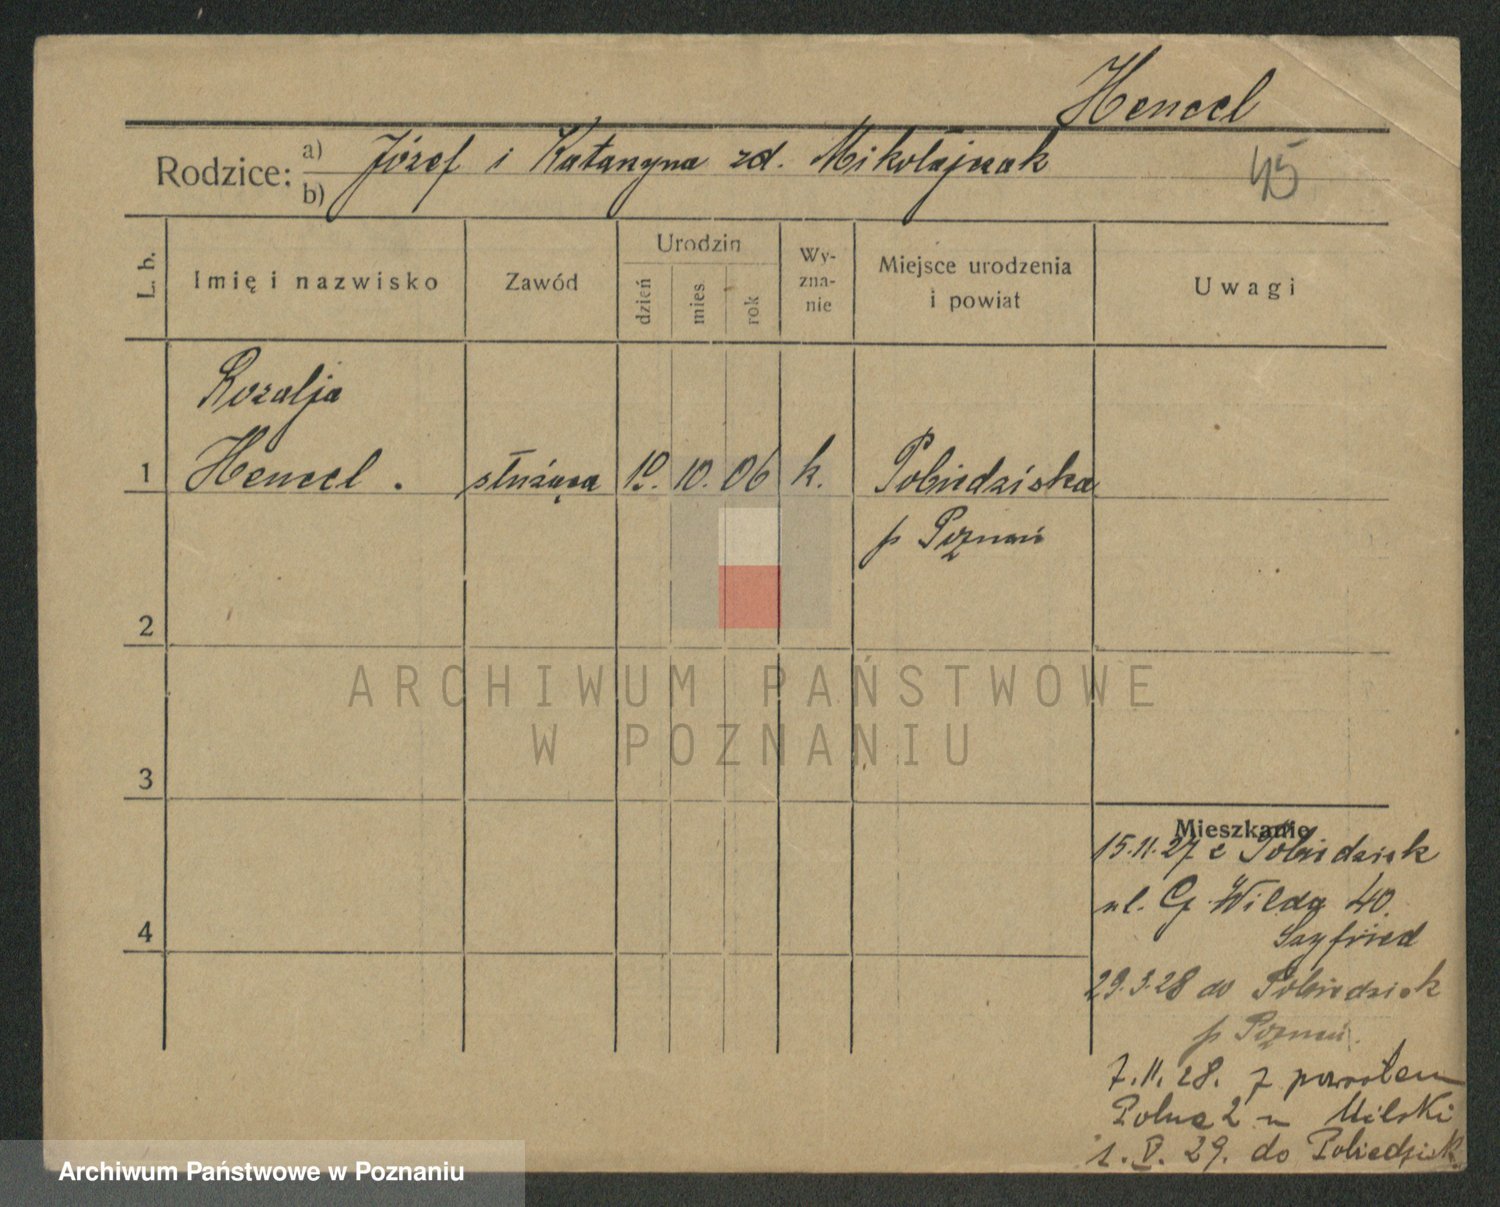 Hencel
Rodzice: a) Józef i Katarzyna zd. Mikołajczak
b)
45
L. b.
Imię i nazwisko
Zawód
Urodzin
dzień
mies
rok
Wy-
zna-
nie
Miejsce urodzenia
i powiat
Uwagi
Rozalja
1 Hencel . służąca 10. 10. 06 k. Pobiedziska
p Poznań
2
ARCHIWUM PAŃSTWOWE
W POZNANIU
3
Mieszkanie
15.11.27 z Pobiedzisk
ul. G. Wilda 40.
Szyfried
4
29.3.28 do Pobiedzisk
p Poznań.
7.11.28. z powrotem
Polna 2 u Milski
1. V. 29. do Pobiedzisk
Archiwum Państwowe w Poznaniu